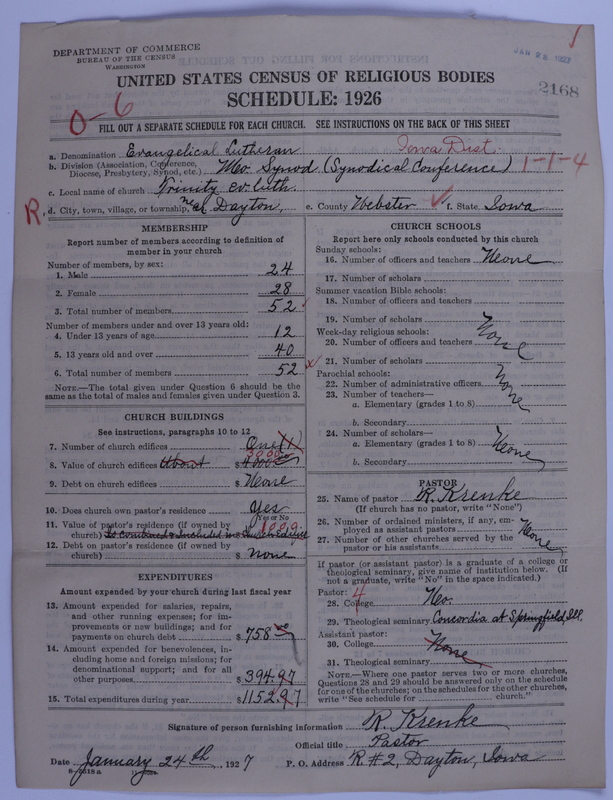 DEPARTMENT OF COMMERCE
BUREAU OF THE CENSUS
WASHINGTON
JAN 28 1927
UNITED STATES CENSUS OF RELIGIOUS BODIES
SCHEDULE: 1926
2168
0-6
FILL OUT A SEPARATE SCHEDULE FOR EACH CHURCH. SEE INSTRUCTIONS ON THE BACK OF THIS SHEET
a. Denomination Evangelical Lutheran Iowa Dist.
b. Division (Association, Conference, Diocese, Presbytery, Synod, etc.) Mo. Synod (Synodical Conference) 1-1-4
c. Local name of church Trinity ev. luth.
R. d. City, town, village, or township near Dayton, e. County Webster f. State Iowa
MEMBERSHIP
Report number of members according to definition of
member in your church
Number of members, by sex:
1. Male 24
2. Female 28
3. Total number of members 52
Number of members under and over 13 years old:
4. Under 13 years of age 12
5. 13 years old and over 40
6. Total number of members 52
NOTE.—The total given under Question 6 should be the
same as the total of males and females given under Question 3.
CHURCH BUILDINGS
See instructions, paragraphs 10 to 12
7. Number of church edifices One (1)
8. Value of church edifices About $ 4000.00 3000
9. Debt on church edifices $ None
10. Does church own pastor's residence? Yes
Yes or No
11. Value of pastor's residence (if owned by 1000
church)
12. Debt on pastor's residence (if owned by
church) $ None
EXPENDITURES
Amount expended by your church during last fiscal year
13. Amount expended for salaries, repairs,
and other running expenses; for im-
provements or new buildings; and for
payments on church debt $ 758.00
14. Amount expended for benevolences, in-
cluding home and foreign missions; for
denominational support; and for all
other purposes $ 394.97
15. Total expenditures during year $ 1152.97
CHURCH SCHOOLS
Report here only schools conducted by this church
Sunday schools:
16. Number of officers and teachers None
17. Number of scholars
Summer vacation Bible schools:
18. Number of officers and teachers
19. Number of scholars None
Week-day religious schools:
20. Number of officers and teachers
21. Number of scholars
Parochial schools:
22. Number of administrative officers None
23. Number of teachers—
a. Elementary (grades 1 to 8)
b. Secondary
24. Number of scholars—
a. Elementary (grades 1 to 8) None
b. Secondary
PASTOR
25. Name of pastor R. Krenke
(If church has no pastor, write "None")
26. Number of ordained ministers, if any, em-
ployed as assistant pastors
27. Number of other churches served by the
pastor or his assistants None
If pastor (or assistant pastor) is a graduate of a college or
theological seminary, give name of institution below. (If
not a graduate, write "No" in the space indicated.)
Pastor: 4
28. College No.
29. Theological seminary Concordia at Springfield, Ill.
Assistant pastor:
30. College None
31. Theological seminary
NOTE.—Where one pastor serves two or more churches,
Questions 28 and 29 should be answered only on the schedule
for one of the churches; on the schedules for the other churches,
write "See schedule for church."
Signature of person furnishing information R. Krenke
Official title Pastor
Date January 24th, 1927 P. O. Address R #2, Dayton, Iowa